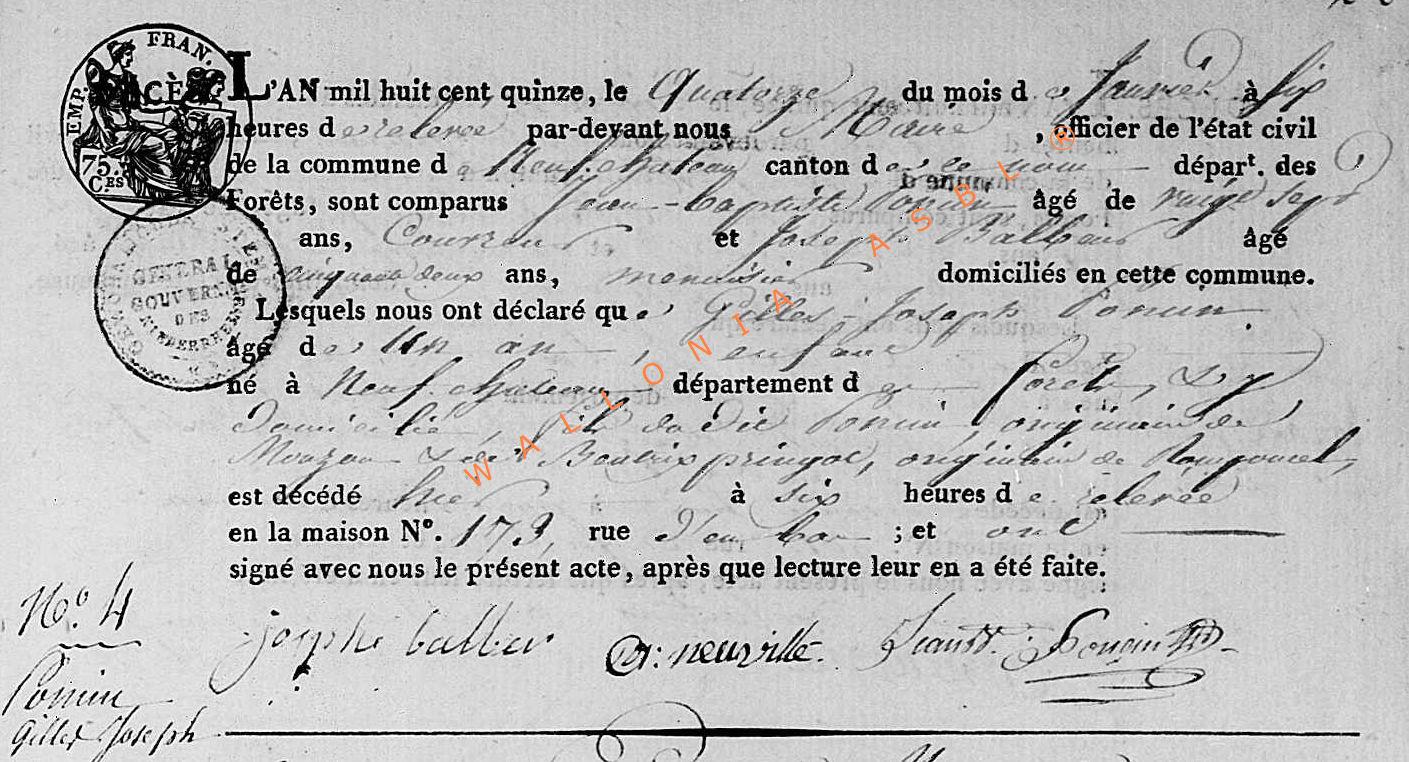 EMP. FRAN.
75 C.ES
L'AN mil huit cent quinze, le Quatorze du mois de Janvier à six
heures de relevée par-devant nous Maire, officier de l'état civil
de la commune de Neufchateau canton de ce nom dépar.t des
Forêts, sont comparus Jean-baptiste Ponin âgé de vingt sept
ans, et Joseph Balbeur âgé
de cinquante deux ans, menuisier domiciliés en cette commune.
Lesquels nous ont déclaré que Gilles-Joseph Ponin
âgé de Un an, enfant
né à Neufchateau département des forêts, & y
Domicilié, fils dudit Ponin, originaire de
Mouzon & de pringot, originaire de
est décédé hier à six heures de relevée
en la maison N°. 173, rue d'en bas ; et ont
signé avec nous le présent acte, après que lecture leur en a été faite.
GENERAL
GOUVERN
DES
N° 4
joseph balbeur neuville. Jean Bt. Ponin
Ponin
Gilles Joseph
WALLONIA ASBL ®